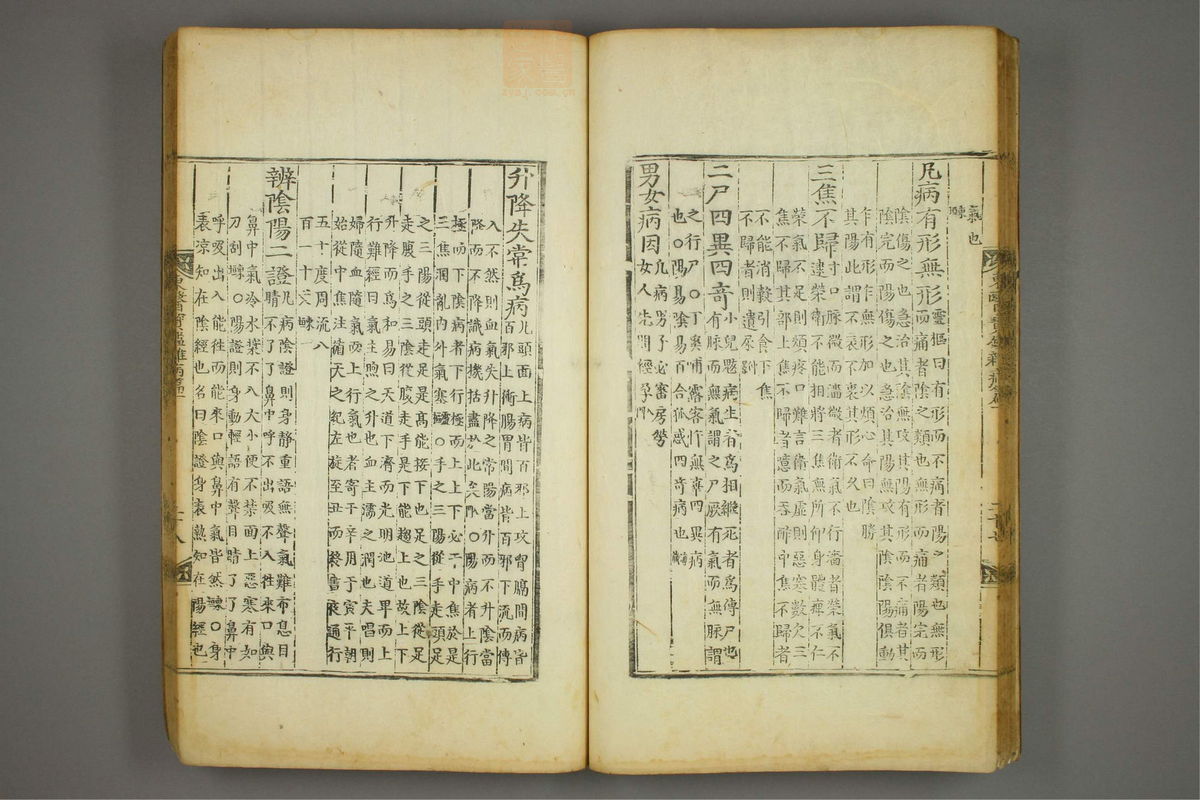 氣也
凡病有形無形 靈樞曰有形而不痛者陽之類也無形
而痛者陰之類也無形而痛者陽完而
陰傷之也急治其陰無攻其陽有形而不痛者其
陰完而陽傷之也急治其陽無攻其陰陰陽俱動
乍有形乍無形加以煩心命曰陰勝
其陽此謂不表不裏其形不久也
三焦不歸 寸口脉微而濇微者衛氣不行濇者榮氣不
逮榮衛不能相將三焦無所仰身體痺不仁
榮氣不足則煩疼口難言衛氣虛則惡寒數欠三
焦不歸其部上焦不歸者噫而吞酢中焦不歸者
不能消穀引食下焦
不歸者則遺尿
二尸四異四奇 小兒魃病生者爲相繼死者爲傳尸也
有脉而無氣謂之尸厥有氣而無脉謂
之行尸○丁奚哺露客忤無辜四異病
也○陽易陰易百合狐惑四奇病也
男女病因 凡病男子必審房勞
女人先問經孕
升降失常爲病 凡頭面上病皆百邪上攻胷膈間病皆
百邪上衝腸胃間病皆百邪下流而傳
入不然則血氣失升降之常陽當升而不升陰當
降而不降識病機括盡於此矣○陽病者上行
極而下陰病者下行極而上上下必干中焦於是
三焦溷亂內外氣塞○手之三陽從手走頭足
之三陽從頭走足是高能接下也足之三陰從足
走腹手之三陰從腹走手是下能趨上也故上下
升降而爲和易曰天道下濟而光明地道卑而上
行難經曰氣主煦之升也血主濡之潤也夫唱則
婦隨血隨氣而上行氣也者寄于辛用于寅平朝
始從中焦注循天之紀左旋至丑而終晝夜通行
五十度周流八
百一十丈
辨陰陽二證 凡病陰證則身靜重語無聲氣難布息目
睛不了了鼻中呼不出吸不入往來口與
鼻中氣冷水漿不入大小便不禁面上惡寒有如
刀刮○陽證則身動輕語有聲目睛了了鼻中
呼吸出入能往而能來口與鼻中氣皆然○身
表涼知在陰經也名曰陰證身表熱知在陽經也
東醫寶鑑雜病篇一
二十八